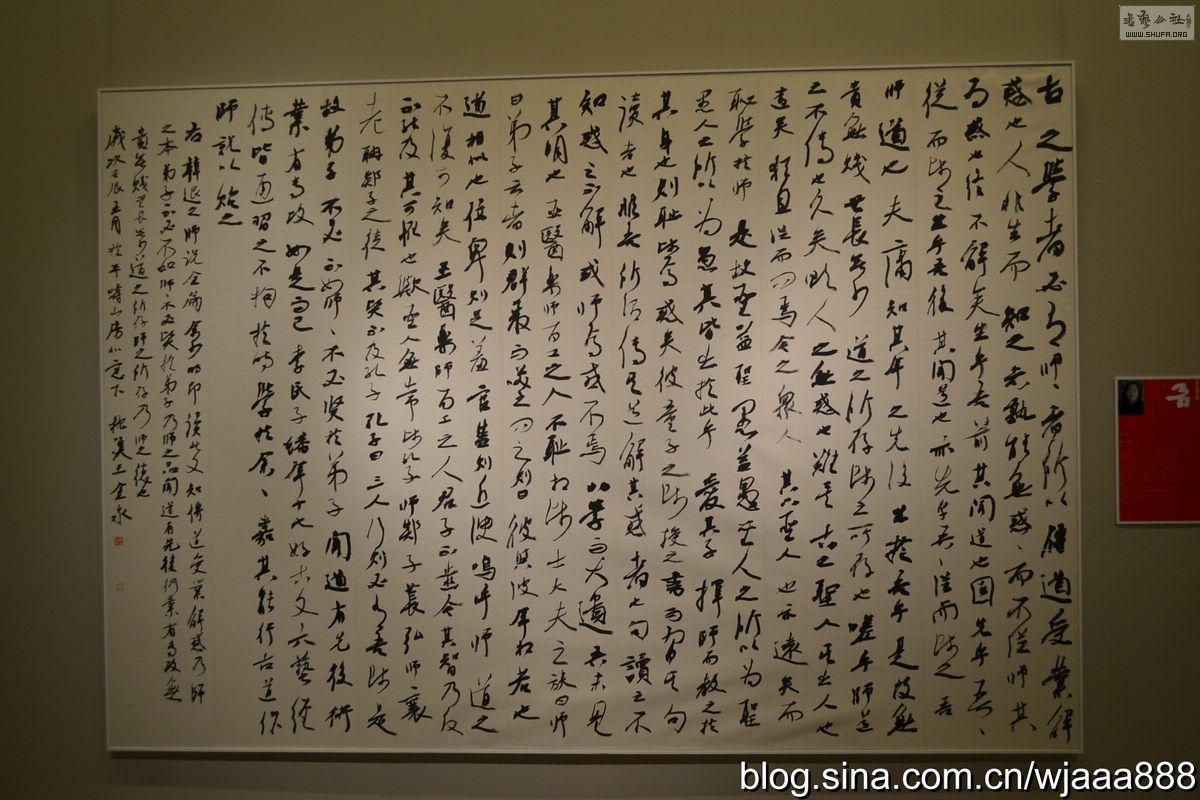 古之學者必有師師者所以傳道受業解
惑也人非生而知之者孰能無惑惑而不從師其
為惑也終不解矣生乎吾前其聞道也固先乎吾吾
從而師之生乎吾後其聞道也亦先乎吾吾從而師之吾
師道也夫庸知其年之先後生於吾乎是故無
貴無賤無長無少道之所存師之所存也嗟乎師道
之不傳也久矣欲人之無惑也難矣古之聖人其出人也
遠矣猶且從師而問焉今之眾人其下聖人也亦遠矣而
恥學於師是故聖益聖愚益愚聖人之所以為聖
愚人之所以為愚其皆出於此乎愛其子擇師而教之於
其身也則恥師焉惑矣彼童子之師授之書而習其句
讀者也非吾所謂傳其道解其惑者也句讀之不
知惑之不解或師焉或不焉小學而大遺吾未見
其明也巫醫樂師百工之人不恥相師士大夫之族曰師
曰弟子云者則群聚而笑之問之則曰彼與彼年相若也
道相似也位卑則足羞官盛則近諛嗚乎師道之
不復可知矣巫醫樂師百工之人君子不齒今其智乃反
不能及其可怪也歟聖人無常師孔子師郯子萇弘師襄
老聃郯子之徒其賢不及孔子孔子曰三人行則必有吾師是
故弟子不必不如師師不必賢於弟子聞道有先後術
業有專攻如是而已李氏子蟠年十七好古文六藝經
傳皆通習之不拘於時學於余余嘉其能行古道作
師說以貽之
右韓退之師说全篇
讀其文知傳道受業解惑乃師
之本弟子不必不如師师不必賢於弟子乃師之
聞道有先後術業有專攻無
貴無賤無長無少道之所存師之所存乃師之
歲次壬辰五月於
山房
王金泉
書藝公社
WWW.SHUFA.ORG
blog.sina.com.cn/wjaaa888